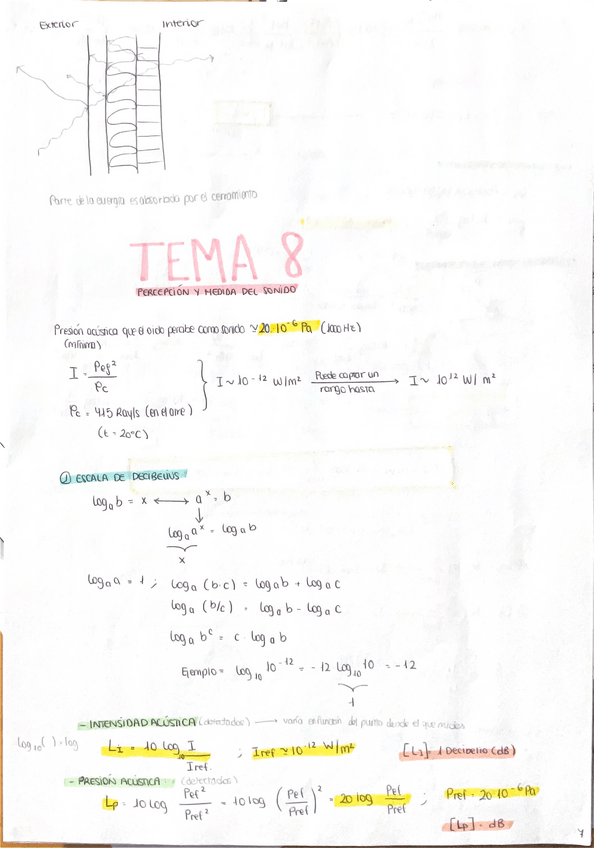 Exterior Interior
Parte de la energia es absorbida por el cerramiento
TEMA 8
PERCEPCIÓN Y MEDIDA DEL SONIDO
Presión acústica que el oido percibe como sonido ≃ 20·10⁻⁶ Pa (1000 Hz)
(mínima)
I = Pef² / ρc
I ~ 10⁻¹² W/m² Puede captar un rango hasta → I ~ 10¹² W/m²
ρc = 415 Rayls (en el aire)
(t = 20°C)
① ESCALA DE DECIBELIUS
logₐ b = x ⟷ aˣ = b
↓
logₐ aˣ = logₐ b
x
logₐ a = 1 ; logₐ (b·c) = logₐ b + logₐ c
logₐ (b/c) = logₐ b - logₐ c
logₐ bᶜ = c · logₐ b
Ejemplo = log₁₀ 10⁻¹² = -12 log₁₀ 10 = -12
1
- INTENSIDAD ACÚSTICA (detectados) → varía en función del punto desde el que medies
log₁₀( ) = log
Lᵢ = 10 log₁₀ I / Iref. ; Iref ≃ 10⁻¹² W/m² [Lᵢ] = 1 Decibelio (dB)
- PRESIÓN ACÚSTICA (detectados)
Lp = 10 log Pef² / Pref² = 10 log (Pef / Pref)² = 20 log Pef / Pref ; Pref = 20·10⁻⁶ Pa
[Lp] = dB